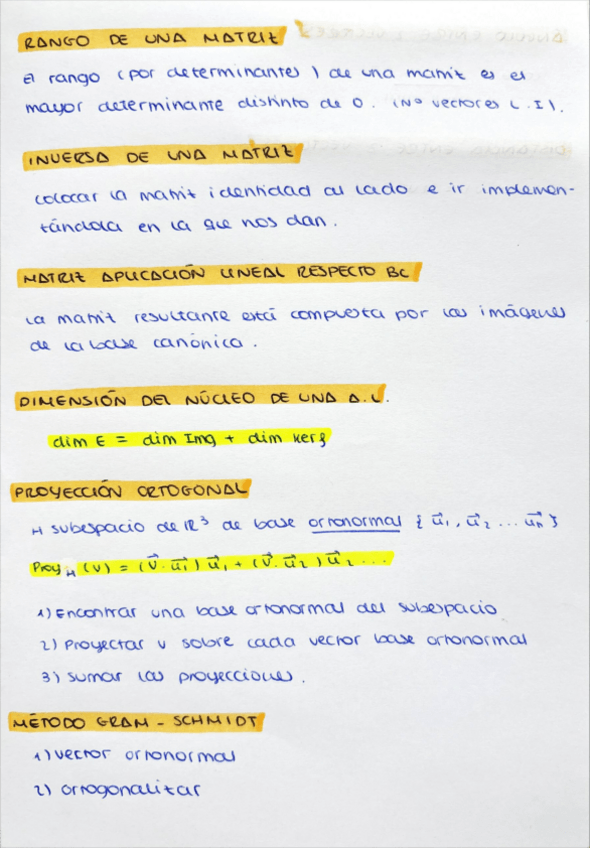 RANGO DE UNA MATRIZ
El rango (por determinantes) de una matriz es el
mayor determinante distinto de 0. (Nº vectores L.I).
INVERSA DE UNA MATRIZ
Colocar la matriz identidad al lado e ir implemen-
tándola en la que nos dan.
MATRIZ APLICACIÓN LINEAL RESPECTO BC
La matriz resultante está compuesta por las imágenes
de la base canónica.
DIMENSIÓN DEL NÚCLEO DE UNA A.L.
dim E = dim Img + dim Kerf
PROYECCIÓN ORTOGONAL
H subespacio de ℝ³ de base ortonormal { u⃗₁, u⃗₂ ... u⃗ₙ }
Proy_H (v) = (v⃗ · u⃗₁) u⃗₁ + (v⃗ · u⃗₂) u⃗₂ ...
1) Encontrar una base ortonormal del subespacio
2) Proyectar v sobre cada vector base ortonormal
3) Sumar las proyecciones.
MÉTODO GRAM - SCHMIDT
1) Vector ortonormal
2) Ortogonalizar